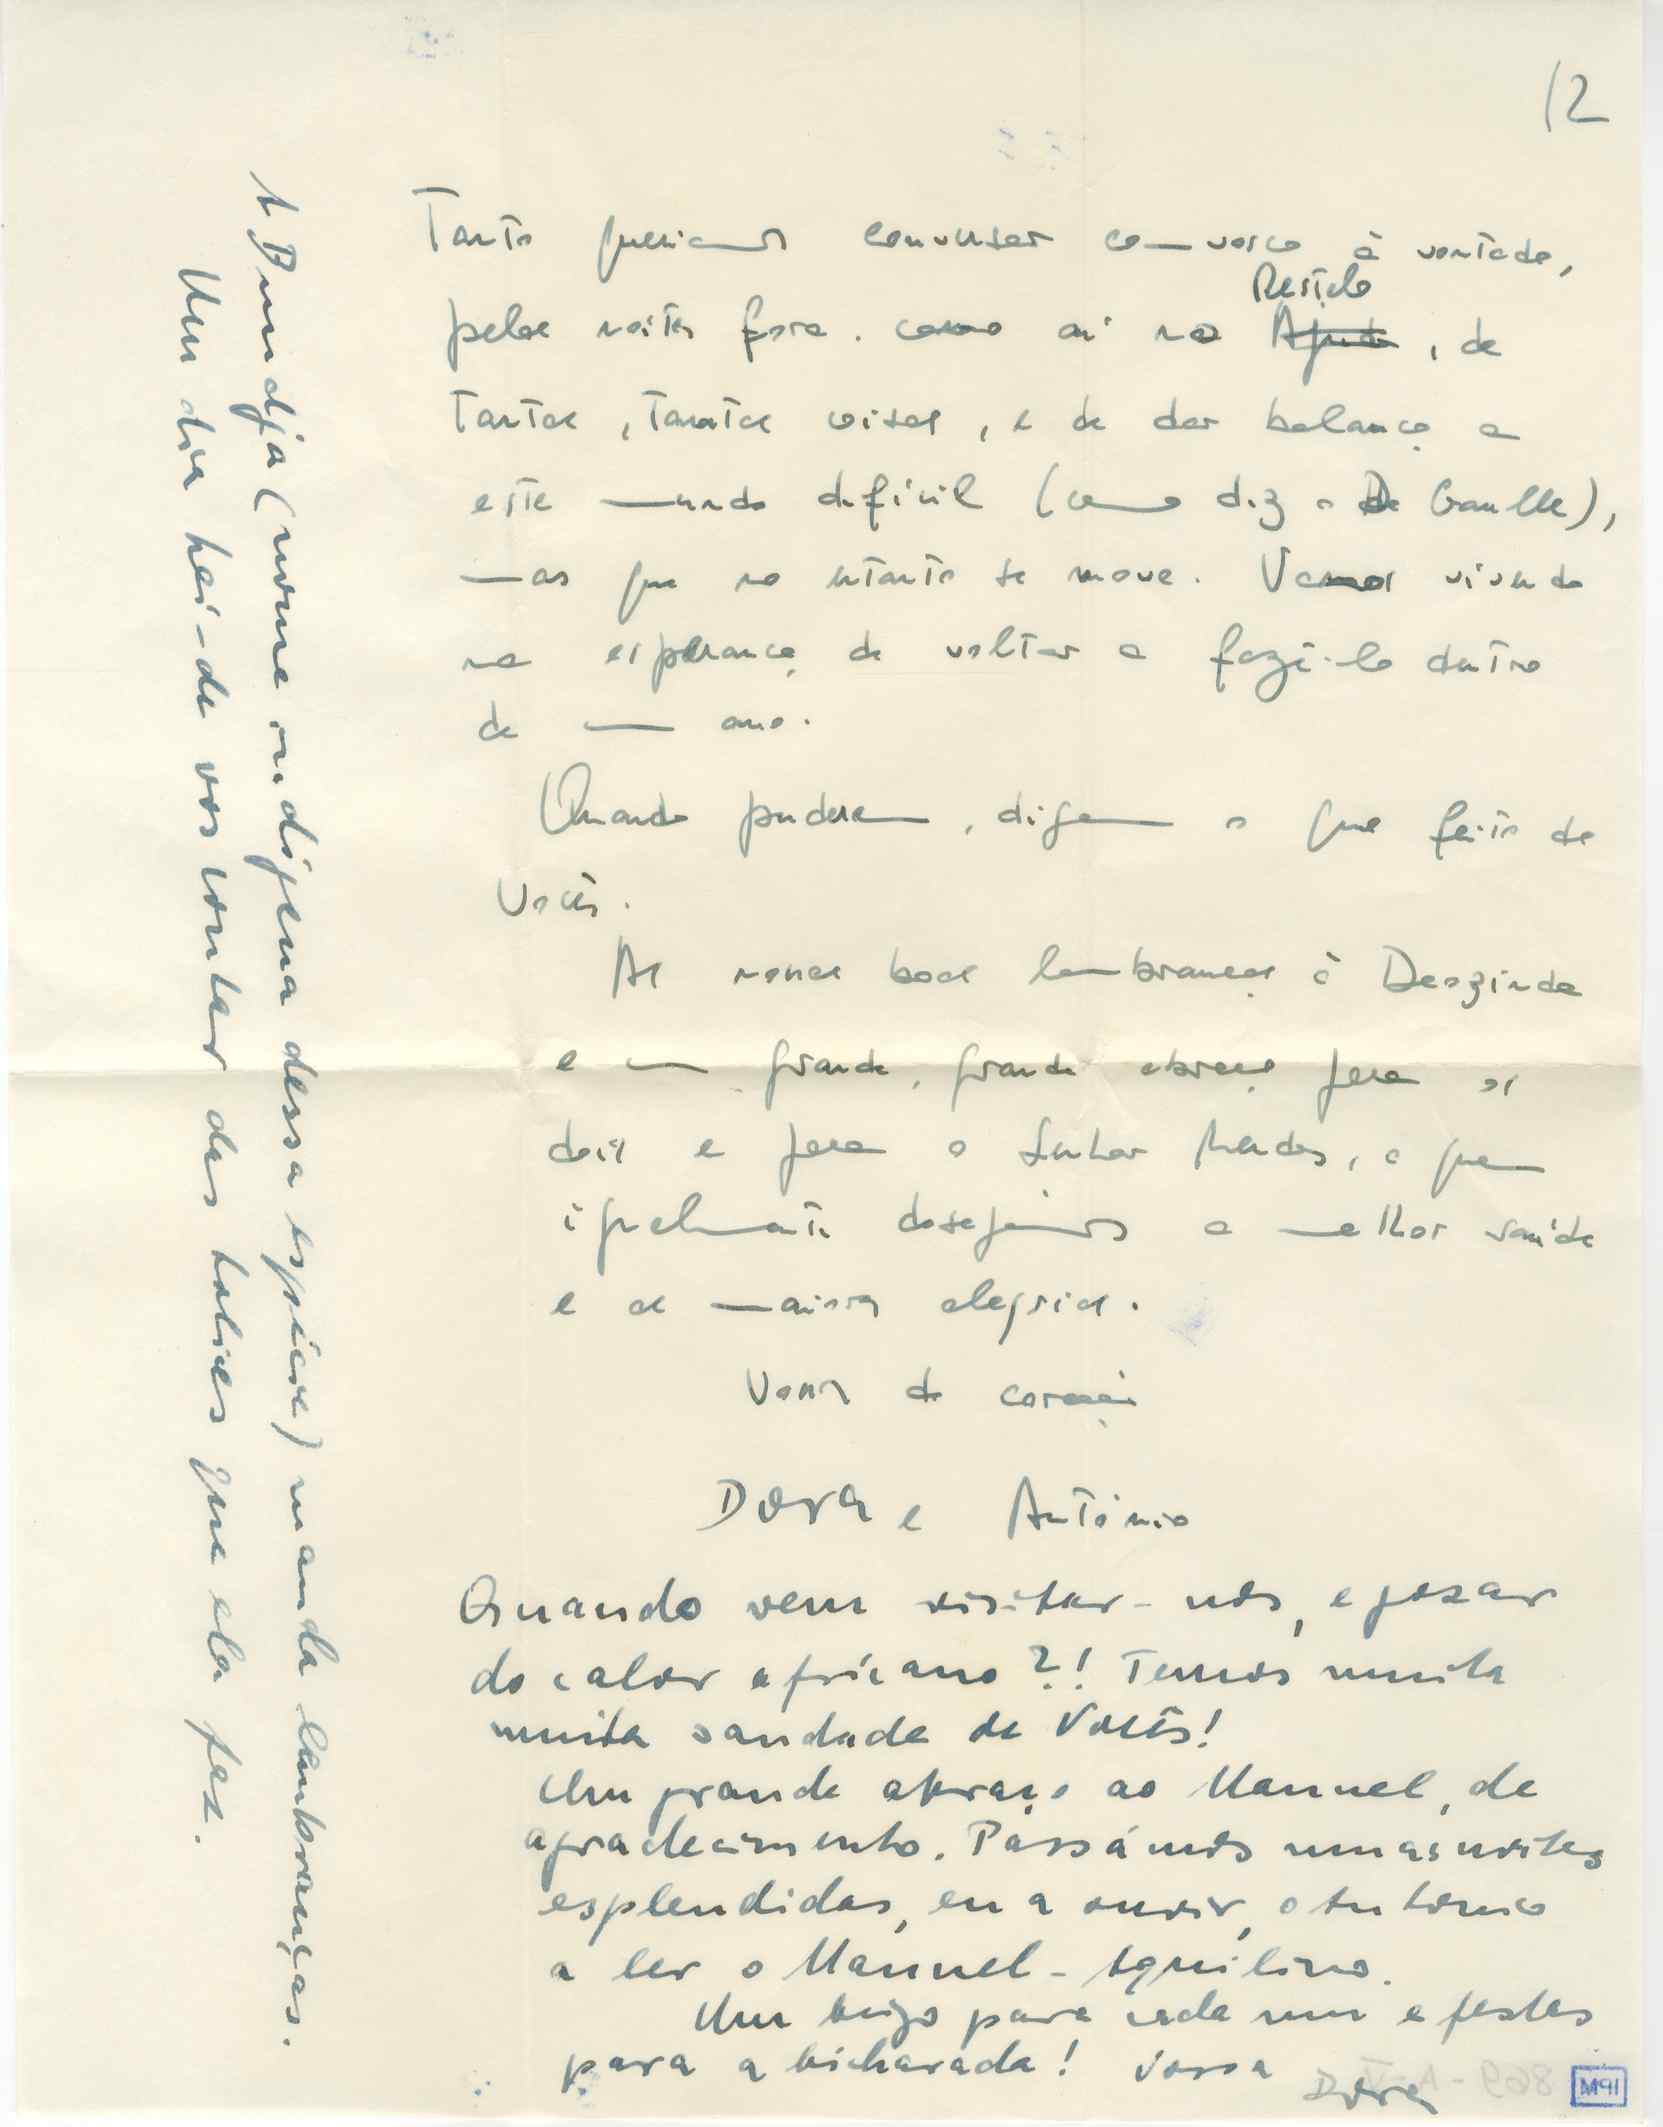 12
Tanto queriamos conversar comvosco à vontade,
Restelo
pelas noites fora. como aí no Ajuda, de
tantas, tantas coisas, e de dar balanço a
este mundo dificil (como diz o De Gaulle),
mas que no entanto se move. Vamos vivendo
na esperança de voltar a fazê-lo dentro
de um ano.
Quando puderem, digam o que feito de
Vocês.
As nossas boas lembranças à Deozinda
e um grande, grande abraço para os
dois e para o Senhor Mendes, a quem
igualmente desejamos a melhor saúde
e as maiores alegrias.
Vossos do coração
Dora e António
Quando vem visitar-nos, e gozar
do calor africano?! Temos muita
muita saudade de Vocês!
Um grande abraço ao Manuel, de
agradecimento. Passámos umas noites
esplendidas, eu a ouvir, o António
a ler o Manuel-Aquilino.
Um beijo para cada um e festas
para a bicharada! Vossa
Dora
A Bundja (nome indígena dessa espécie) manda lembranças.
Um dia hei-de vos contar das tolices que ela fez.
869 - A - V
M91